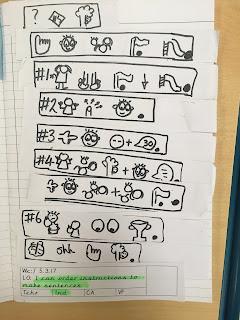 ?
#1
#2
#3
#4
#6
shh
W/c: 5.3.17
LO: I can order instructions to
make sentences
Ind CA